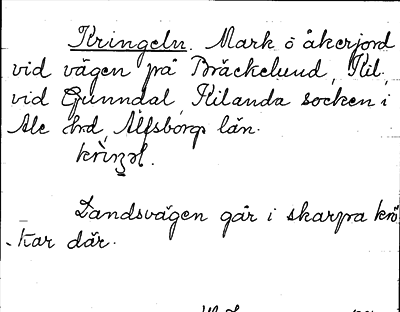 Kringeln. Mark o åkerjord
vid vägen på Bräckelund, Kil,
vid Gunndal, Kilanda socken i
Ale hrd, Älfsborgs län.
Landsvägen går i skarpa krö-
kar där.